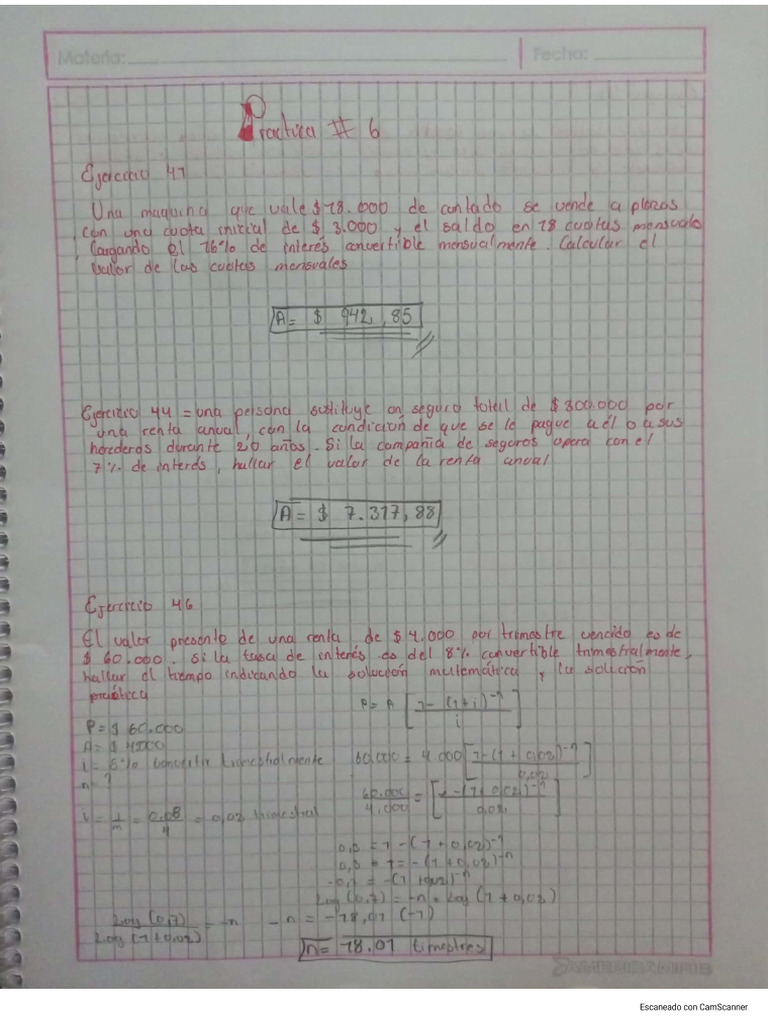 Materia:
Fecha:
Practica # 6
Ejercicio 41
Una maquina que vale $ 18.000 de contado se vende a plazos
con una cuota inicial de $ 3.000 y el saldo en 18 cuotas mensuale
Cargando el 16% de interés convertible mensualmente. Calcular el
valor de las cuotas mensuales
A= $ 942,85
Ejercicio 44 = una persona sustituye un seguro total de $ 300.000 por
una renta anual, con la condición de que se le pague a él o a sus
herederos durante 20 años. Si la compañia de seguros opera con el
7% de interés, hallar el valor de la renta anual
A= $ 7.317,88
Ejercicio 46
El valor presente de una renta de $ 4.000 por trimestre vencido es de
$ 60.000. Si la tasa de interés es del 8% convertible trimestralmente,
hallar el tiempo indicando la solución matemática y la solución
práctica
P= A [1-(1+i)^-n / i]
P= $ 60.000
A= $ 4000
i= 8% trimestralmente
n= ?
60.000 = 4.000 [1-(1+0,02)^-n / 0,02]
60.000 / 4.000 = [1-(1+0,02)^-n / 0,02]
i = j/m = 0,08/4 = 0,02 trimestral
0,3 = 1-(1+0,02)^-n
0,3 - 1 = -(1+0,02)^-n
-0,7 = -(1+0,02)^-n
Log (0,7) = -n · Log (1+0,02)
Log (0,7) / Log (1+0,02) = -n
-n = -18,01 (-1)
n= 18.01 timestres
Escaneado con CamScanner